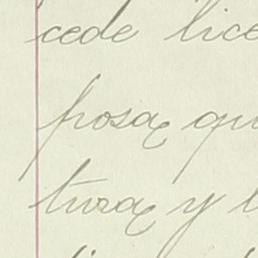 cede lice
posa qu
tura y l